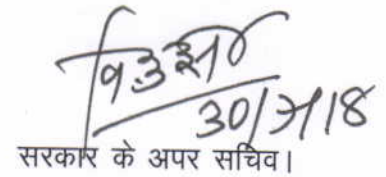 30/7/18
सरकार के अपर सचिव।